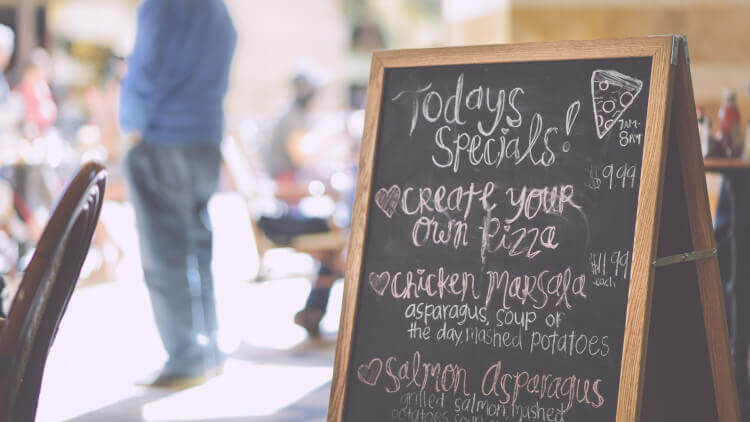 Todays
Specials!
7PM-
8PM
$9.99
CREATE YOUR
OWN PIZZA
$11.99
each
Chicken Marsala
asparagus, soup of
the day, mashed potatoes
Salmon Asparagus
grilled salmon, mashed
potatoes, soup